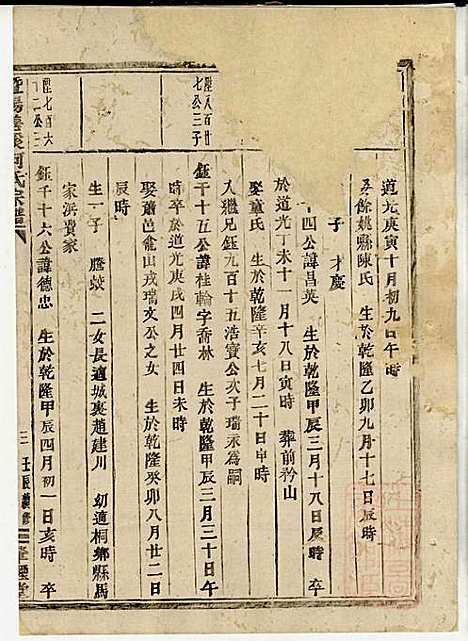 道光庚寅十月初九日午時
娶餘姚縣陳氏 生於乾隆乙卯九月十七日辰時
子 才慶
十四公諱昌英 生於乾隆甲辰三月十八日辰時 卒
於道光丁未十一月十八日寅時 葬前矜山
娶童氏 生於乾隆辛亥七月二十日申時
入繼兄鈺九百十五浩寶公次子瑞永為嗣
陞八百廿
七公三子
鈺千十五公諱桂輪字喬林 生於乾隆甲辰三月三十日午
時卒於道光庚戌四月廿四日未時
娶蕭邑龕山戎瑞文公之女 生於乾隆癸卯八月廿二日
辰時
生一子 騰蛟 二女長適城裏趙建川 幼適桐鄉縣馬
家浜費家
陞七百六
十二公三
鈺千十六公諱德忠 生於乾隆甲辰四月初一日亥時 卒
何氏宗譜
三 壬辰續修